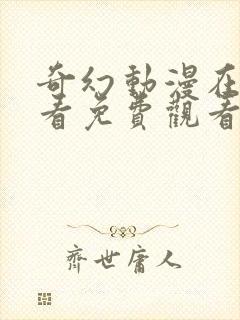 奇幻動漫在
看免費觀看
齊世庸人